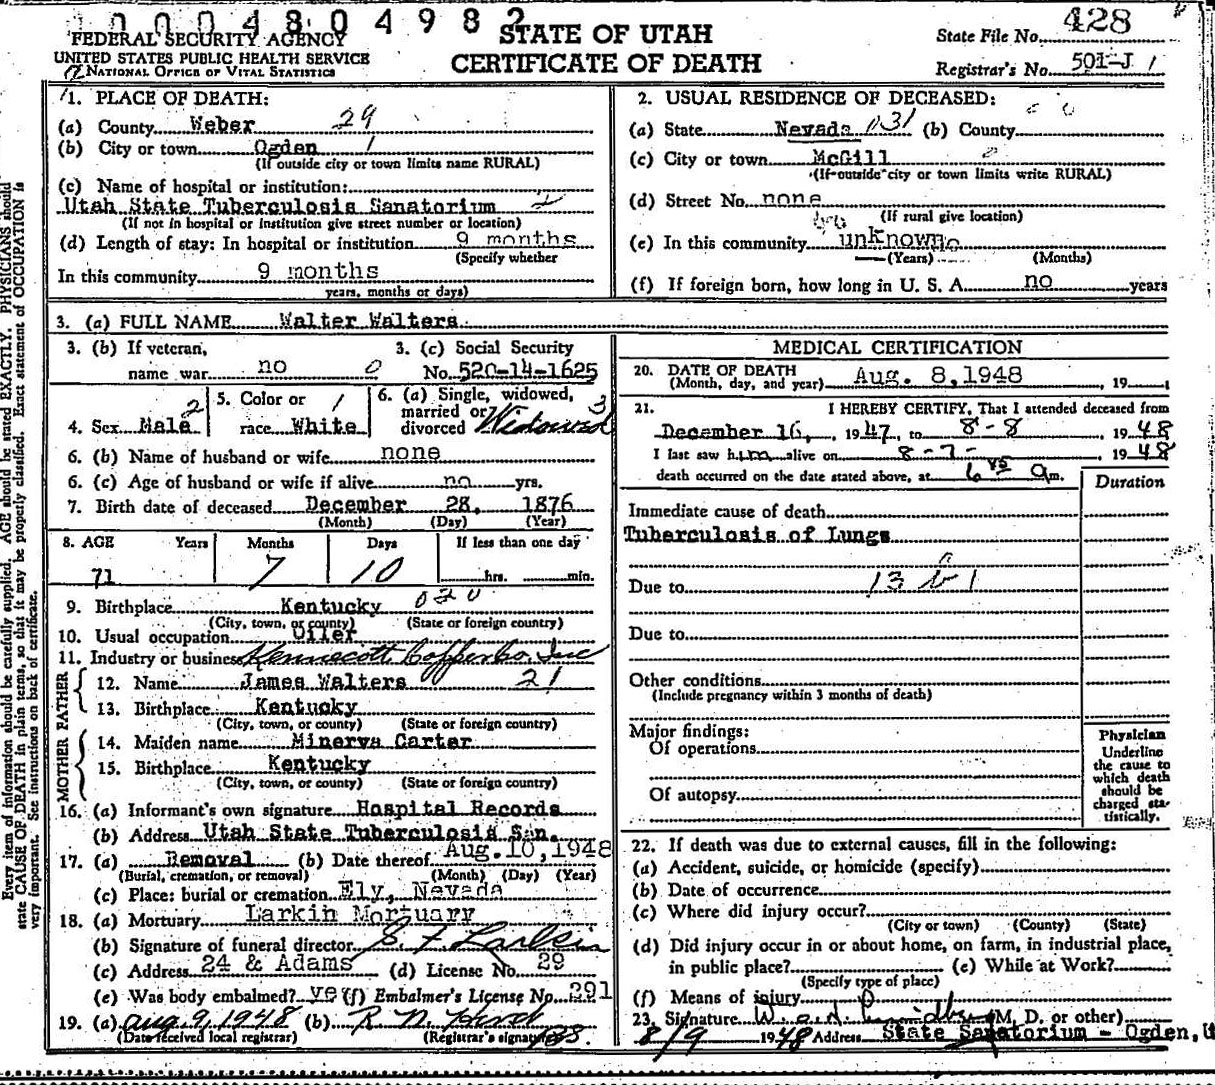 0004804982
STATE OF UTAH
CERTIFICATE OF DEATH
FEDERAL SECURITY AGENCY
UNITED STATES PUBLIC HEALTH SERVICE
NATIONAL OFFICE OF VITAL STATISTICS
State File No. 428
Registrar's No. 501-J
1. PLACE OF DEATH:
(a) County Weber 29
(b) City or town Ogden 1
(If outside city or town limits name RURAL)
(c) Name of hospital or institution:
Utah State Tuberculosis Sanatorium 2
(If not in hospital or institution give street number or location)
(d) Length of stay: In hospital or institution 9 months
(Specify whether
In this community 9 months
years, months or days)
2. USUAL RESIDENCE OF DECEASED:
(a) State Nevada 031 (b) County
(c) City or town McGill
(If outside city or town limits write RURAL)
(d) Street No. none
(If rural give location)
(e) In this community unknown
(Years) (Months)
(f) If foreign born, how long in U. S. A. no years
3. (a) FULL NAME Walter Walters
3. (b) If veteran, name war no 0
3. (c) Social Security No. 520-14-1625
4. Sex Male 2
5. Color or race White 1
6. (a) Single, widowed, married or divorced Widowed 3
6. (b) Name of husband or wife none
6. (c) Age of husband or wife if alive no yrs.
7. Birth date of deceased December 28, 1876
(Month) (Day) (Year)
8. AGE Years Months Days If less than one day
71 7 10 hrs. min.
9. Birthplace Kentucky 020
(City, town, or county) (State or foreign country)
10. Usual occupation Oiler
11. Industry or business Kennecott Copper Co. Inc
FATHER
12. Name James Walters 21
13. Birthplace Kentucky
(City, town, or county) (State or foreign country)
MOTHER
14. Maiden name Minerva Carter
15. Birthplace Kentucky
(City, town, or county) (State or foreign country)
16. (a) Informant's own signature Hospital Records
(b) Address Utah State Tuberculosis San.
17. (a) Removal (b) Date thereof Aug. 10, 1948
(Burial, cremation, or removal) (Month) (Day) (Year)
(c) Place: burial or cremation Ely, Nevada
18. (a) Mortuary Larkin Mortuary
(b) Signature of funeral director S F Larkin
(c) Address 24 & Adams (d) License No. 29
(e) Was body embalmed? yes (f) Embalmer's License No. 291
19. (a) Aug 9, 1948 (b) R N Hird
(Date received local registrar) (Registrar's signature)
MEDICAL CERTIFICATION
20. DATE OF DEATH
(Month, day, and year) Aug. 8, 1948, 19
21. I HEREBY CERTIFY, That I attended deceased from
December 16, 1947, to 8-8, 1948
I last saw him alive on 8-7-, 1948
death occurred on the date stated above, at 6 45 am.
Duration
Immediate cause of death
Tuberculosis of Lungs
Due to 13 b 1
Due to
Other conditions
(Include pregnancy within 3 months of death)
Major findings:
Of operations
Of autopsy
Physician
Underline
the cause to
which death
should be
charged sta-
tistically.
22. If death was due to external causes, fill in the following:
(a) Accident, suicide, or homicide (specify)
(b) Date of occurrence
(c) Where did injury occur?
(City or town) (County) (State)
(d) Did injury occur in or about home, on farm, in industrial place,
in public place? (e) While at Work?
(Specify type of place)
(f) Means of injury
23. Signature (M. D. or other)
8/9 1948 Address State Sanatorium - Ogden, U
Every item of information should be carefully supplied. AGE should be stated EXACTLY. PHYSICIANS should
state CAUSE OF DEATH in plain terms, so that it may be properly classified. Exact statement of OCCUPATION is
very important. See instructions on back of certificate.